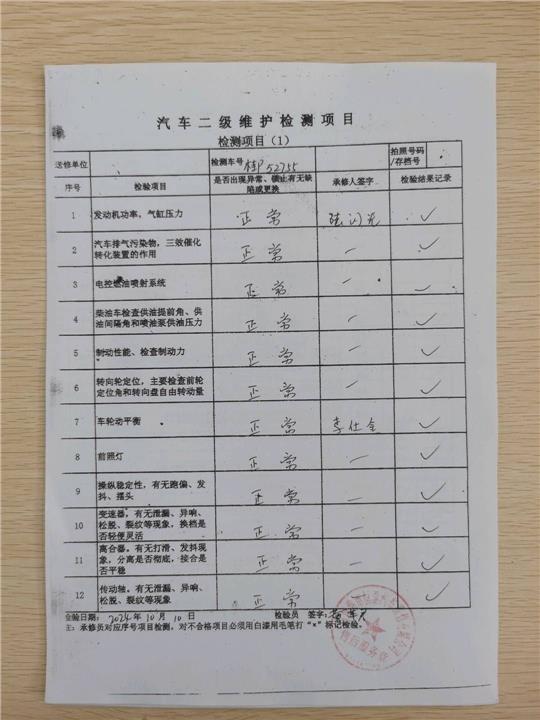 汽车二级维护检测项目
检测项目（1）
送修单位 检测车号 52755 拍照号码/存档号
序号 检验项目 是否出现异常、锁止有无缺陷或更换 承修人签字 检验结果记录
1 发动机功率，气缸压力 正常 ✓
2 汽车排气污染物，三效催化转化装置的作用 正常 — ✓
3 电控燃油喷射系统 正常 — ✓
4 柴油车检查供油提前角、供油间隔角和喷油泵供油压力 正常 — ✓
5 制动性能、检查制动力 正常 — ✓
6 转向轮定位，主要检查前轮定位角和转向盘自由转动量 正常 — ✓
7 车轮动平衡 正常 李仕全 ✓
8 前照灯 正常 — ✓
9 操纵稳定性，有无跑偏、发抖、摆头 正常 — ✓
10 变速器，有无泄漏、异响、松脱、裂纹等现象，换档是否轻便灵活 正常 — ✓
11 离合器，有无打滑、发抖现象，分离是否彻底，接合是否平稳 正常 — ✓
12 传动轴，有无泄漏、异响、松脱、裂纹等现象 正常 — ✓
验日期：2024年10月10日 检验员 签字：
主：承修员对应序号项目检测，对不合格项目必须用白漆用毛笔打“×”标记检验。
售后服务